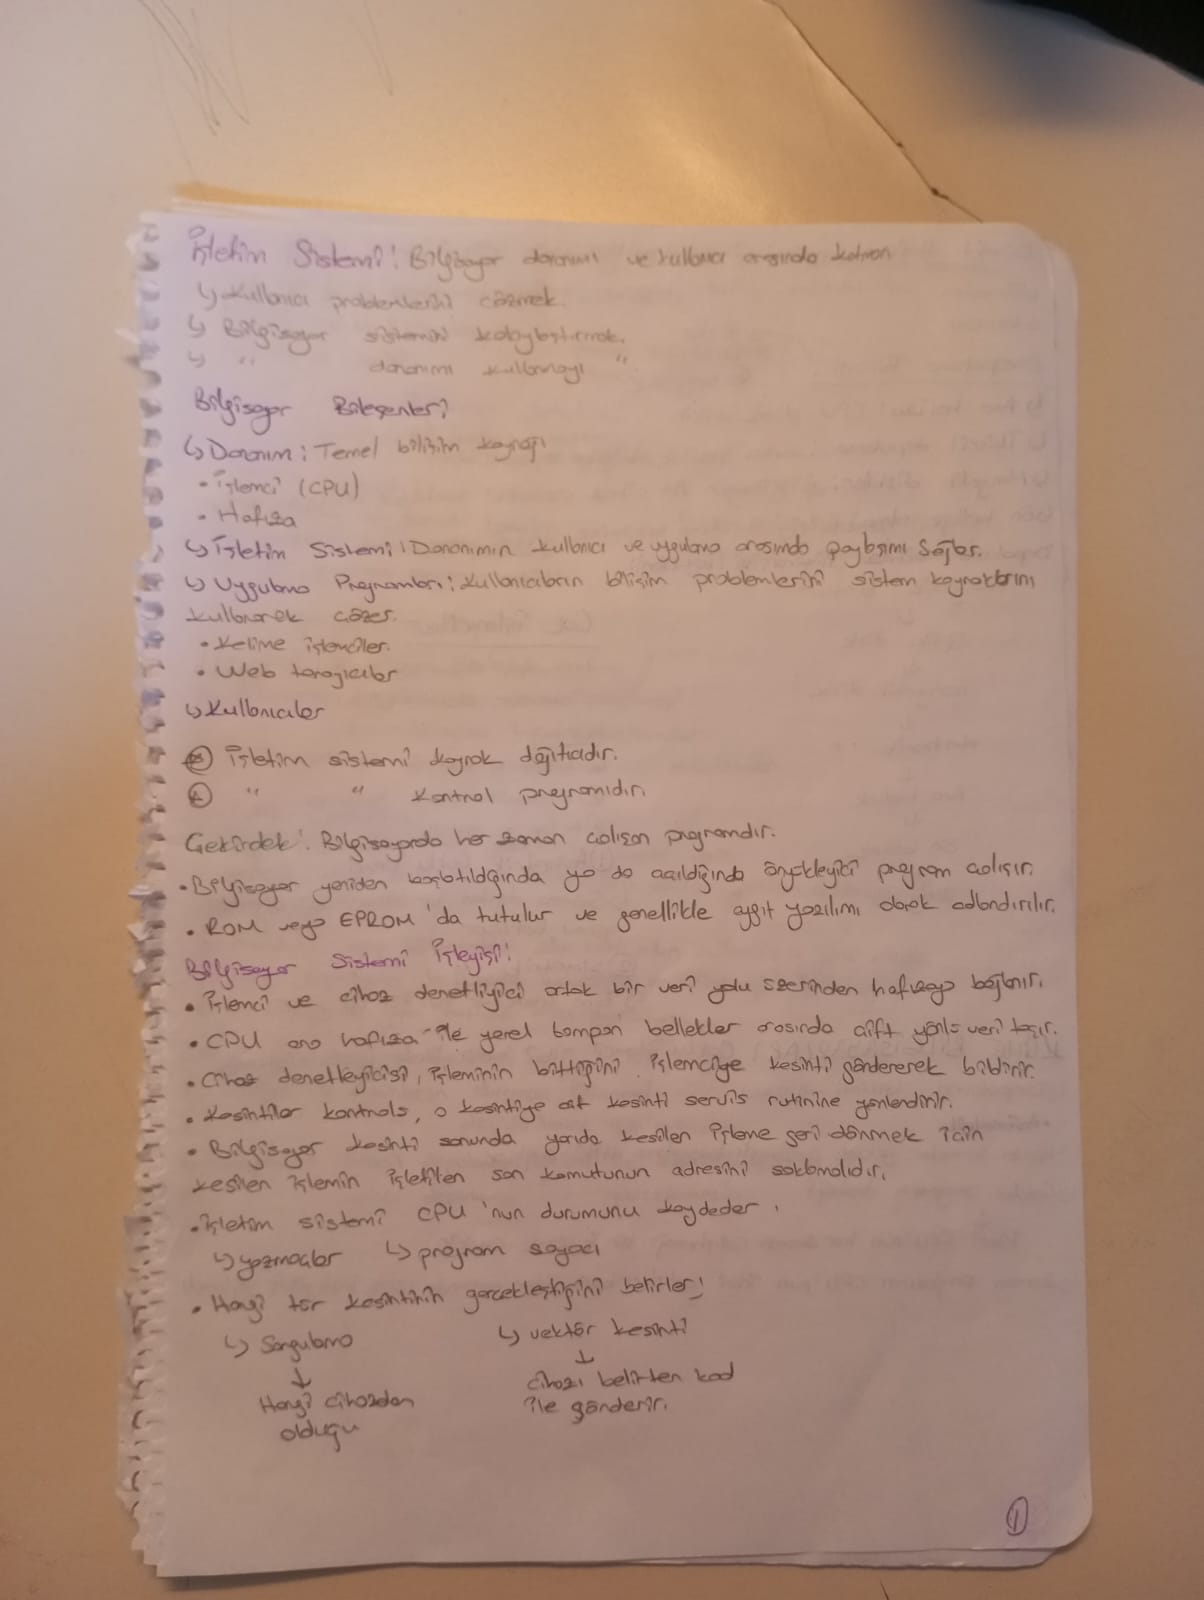 İşletim Sistemi: Bilgisayar donanımı ve kullanıcı arasında katman
↳ Kullanıcı problemlerini çözmek
↳ Bilgisayar sistemini kolaylaştırmak.
↳ " donanımı kullanmayı "
Bilgisayar Bileşenleri
↳ Donanım: Temel bilişim kaynağı
• İşlemci (CPU)
• Hafıza
↳ İşletim Sistemi: Donanımın kullanıcı ve uygulama arasında paylaşımı sağlar.
↳ Uygulama Programları: Kullanıcıların bilişim problemlerini sistem kaynaklarını
kullanarak çözer.
• Kelime işlemciler.
• Web tarayıcılar
↳ Kullanıcılar
İşletim sistemi kaynak dağıtıcıdır.
" " kontrol programıdır.
Çekirdek: Bilgisayarda her zaman çalışan programdır.
• Bilgisayar yeniden başlatıldığında ya da açıldığında önyükleyici program çalışır.
• ROM veya EPROM 'da tutulur ve genellikle aygıt yazılımı olarak adlandırılır.
Bilgisayar Sistemi İşleyişi:
• İşlemci ve cihaz denetliyici ortak bir veri yolu üzerinden hafızaya bağlanır.
• CPU ana hafıza ile yerel tampon bellekler arasında çift yönlü veri taşır.
• Cihaz denetleyicisi, işleminin bittiğini işlemciye kesinti göndererek bildirir.
• Kesintiler kontrolü, o kesintiye ait kesinti servis rutinine yönlendirir.
• Bilgisayar kesinti sonunda yarıda kesilen işleme geri dönmek için
kesilen işlemin işletilen son komutunun adresini saklamalıdır.
• İşletim sistemi CPU 'nun durumunu kaydeder.
↳ yazmaçlar ↳ program sayacı
• Hangi tür kesintinin gerçekleştiğini belirler;
↳ Sorgulama ↳ vektör kesinti
↓ ↓
Hangi cihazdan cihazı belirten kod
olduğu ile gönderir.
1